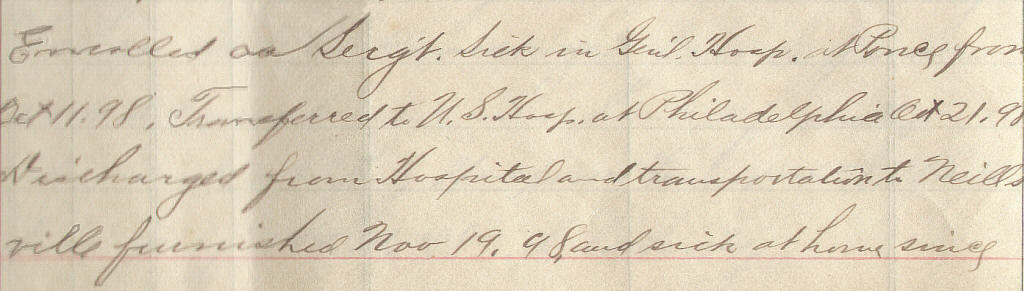 Enrolled as Serg't. Sick in Gen'l. Hosp. at Ponce from
Oct 11. 98. Transferred to U. S. Hosp. at Philadelphia Oct 21. 98
Discharged from Hospital and transportation to Neills
ville furnished Nov. 19. 98, and sick at home since